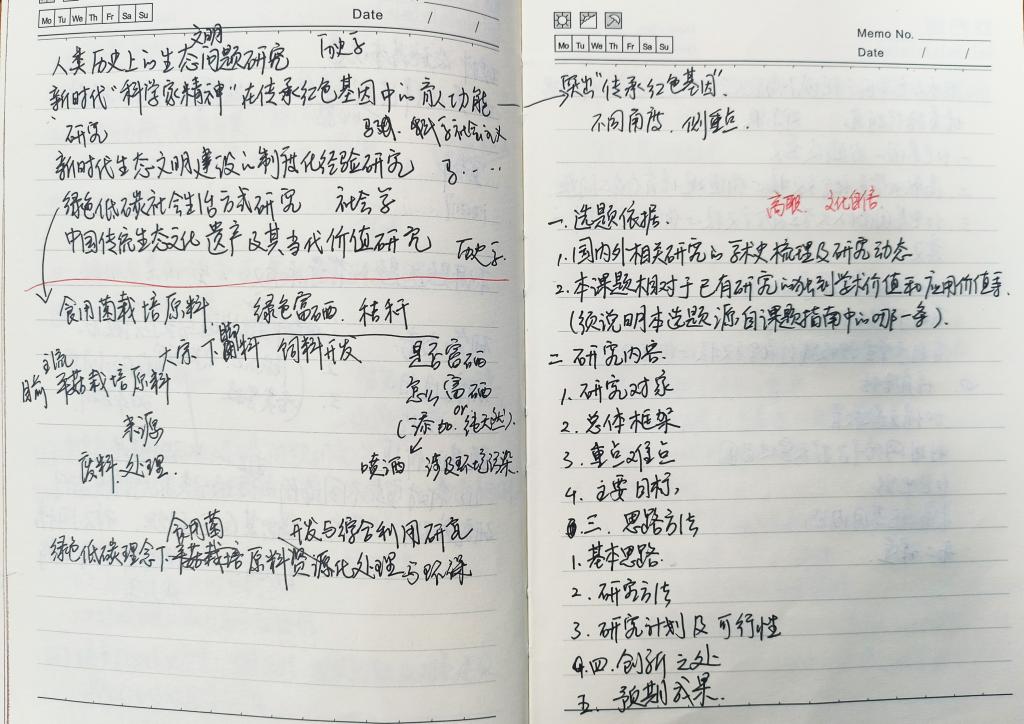 Mo Tu We Th Fr Sa Su
Date / /
文明
人类历史上的生态问题研究 历史学
新时代“科学家精神”在传承红色基因中的育人功能
研究 科学社会主义
新时代生态文明建设的制度化经验研究 马....
绿色低碳社会生活方式研究 社会学
中国传统生态文化遗产及其当代价值研究 历史学.
食用菌栽培原料, 绿色富硒. 秸秆
大宗下 饲料开发 是否富硒
主流
目前 平菇栽培原料 怎么富硒
or
来源 (添加. 纯天然).
废料处理. 喷洒 涉及环境污染.
食用菌 开发与综合利用研究
绿色低碳理念下平菇栽培原料资源化处理与环保
Mo Tu We Th Fr Sa Su
Memo No.
Date / /
突出“传承红色基因”.
不同角度. 侧重点.
高职. 文化自信
一. 选题依据.
1. 国内外相关研究的学术史梳理及研究动态
2. 本课题相对于已有研究的独到学术价值和应用价值等.
(须说明本选题源自课题指南中的哪一条).
二. 研究内容.
1. 研究对象
2. 总体框架
3. 重点难点
4. 主要目标,
三. 思路方法
1. 基本思路.
2. 研究方法
3. 研究计划及可行性
四. 创新之处
五. 预期成果.